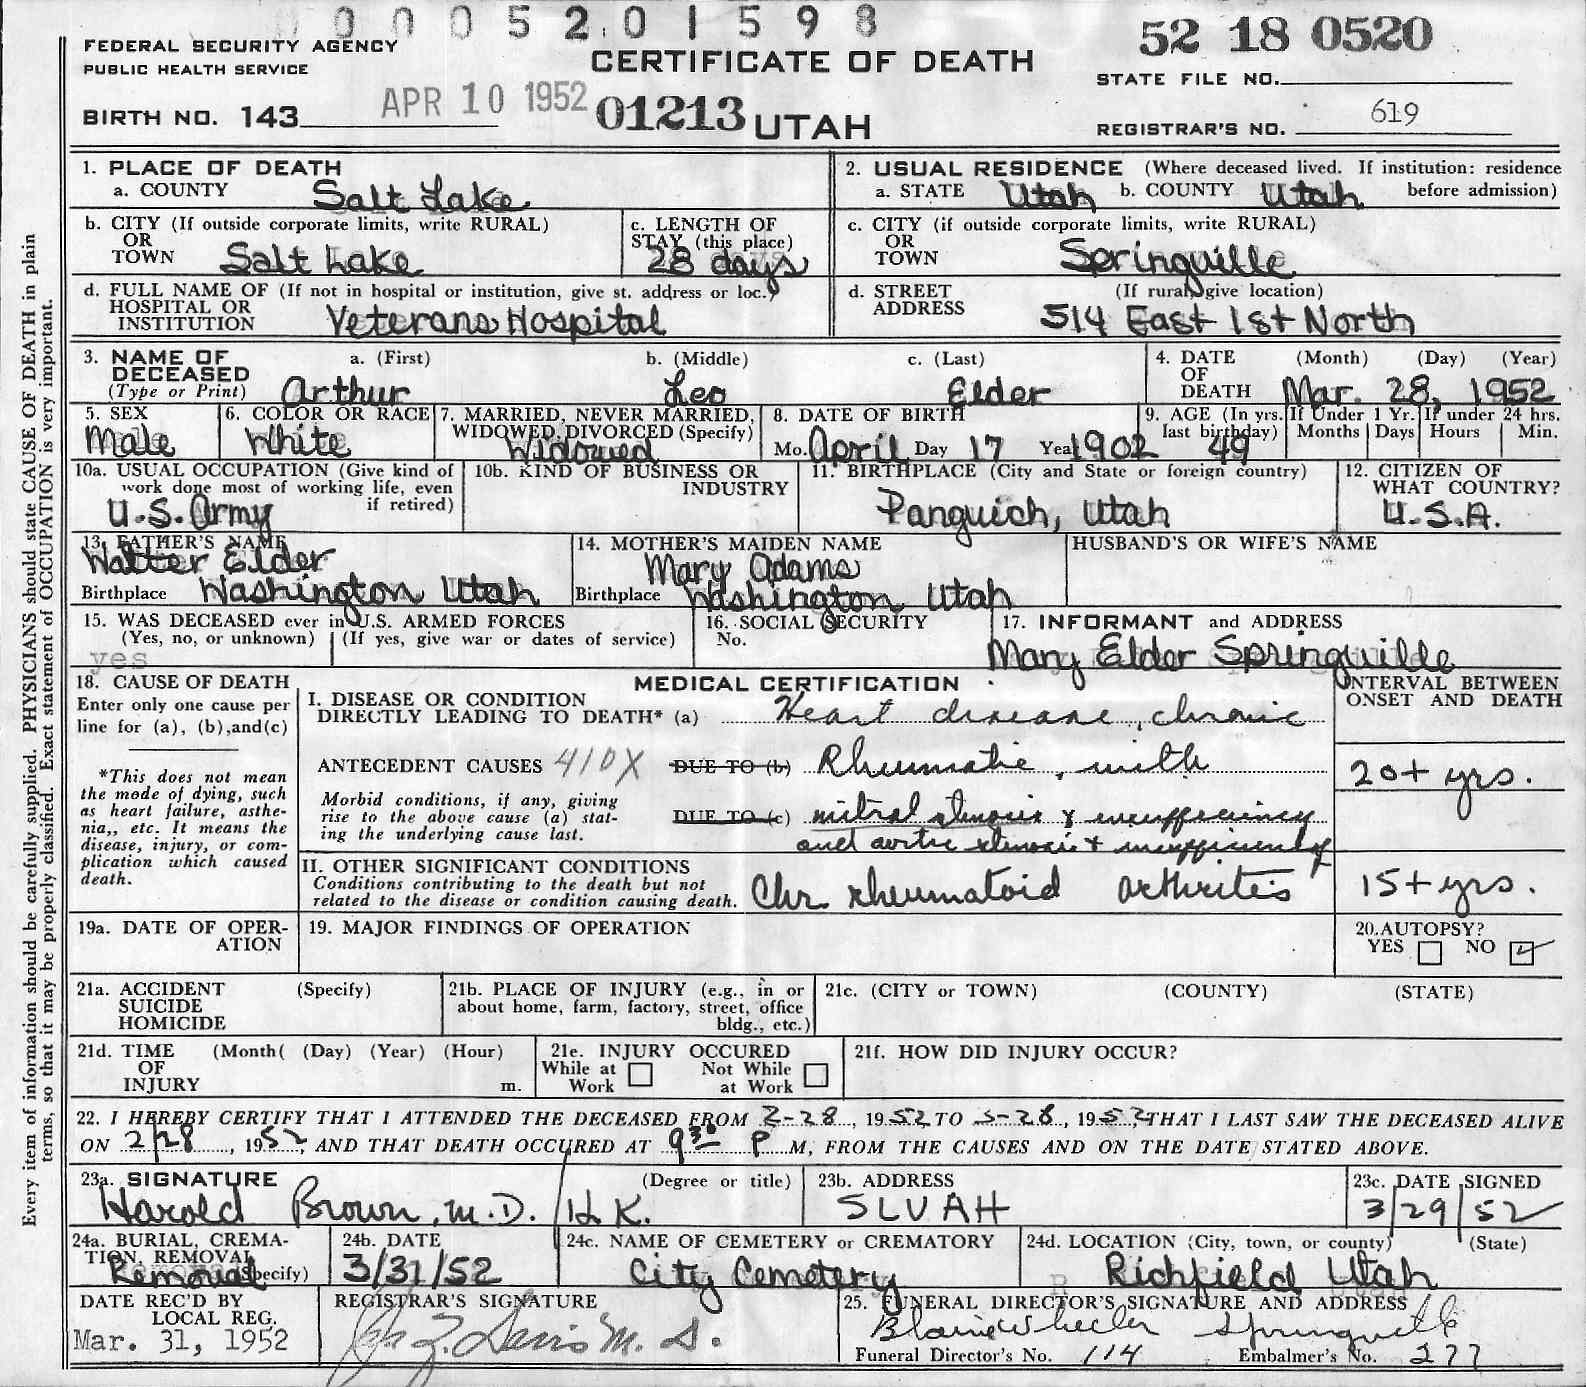 0 0 0 5 2 0 1 5 9 8
52 18 0520
FEDERAL SECURITY AGENCY
PUBLIC HEALTH SERVICE
CERTIFICATE OF DEATH
STATE FILE NO.
BIRTH NO. 143 APR 10 1952 01213 UTAH
REGISTRAR'S NO. 619
Every item of information should be carefully supplied. PHYSICIANS should state CAUSE OF DEATH in plain
terms, so that it may be properly classified. Exact statement of OCCUPATION is very important.
1. PLACE OF DEATH
a. COUNTY Salt Lake
2. USUAL RESIDENCE (Where deceased lived. If institution: residence
a. STATE Utah b. COUNTY Utah before admission)
b. CITY (If outside corporate limits, write RURAL)
OR
TOWN Salt Lake
c. LENGTH OF
STAY (this place)
28 days
c. CITY (if outside corporate limits, write RURAL)
OR
TOWN Springville
d. FULL NAME OF (If not in hospital or institution, give st. address or loc.)
HOSPITAL OR
INSTITUTION Veterans Hospital
d. STREET (If rural, give location)
ADDRESS 514 East 1st North
3. NAME OF a. (First) b. (Middle) c. (Last)
DECEASED
(Type or Print) Arthur Leo Elder
4. DATE (Month) (Day) (Year)
OF
DEATH Mar. 28, 1952
5. SEX
Male
6. COLOR OR RACE
White
7. MARRIED, NEVER MARRIED,
WIDOWED, DIVORCED (Specify)
Widowed
8. DATE OF BIRTH
Mo. April Day 17 Year 1902
9. AGE (In yrs.
last birthday)
49
If Under 1 Yr.
Months Days
If under 24 hrs.
Hours Min.
10a. USUAL OCCUPATION (Give kind of
work done most of working life, even
if retired)
U.S. Army
10b. KIND OF BUSINESS OR
INDUSTRY
11. BIRTHPLACE (City and State or foreign country)
Panguich, Utah
12. CITIZEN OF
WHAT COUNTRY?
U.S.A.
13. FATHER'S NAME
Walter Elder
Birthplace Washington Utah
14. MOTHER'S MAIDEN NAME
Mary Adams
Birthplace Washington Utah
HUSBAND'S OR WIFE'S NAME
15. WAS DECEASED ever in U.S. ARMED FORCES
(Yes, no, or unknown) (If yes, give war or dates of service)
yes
16. SOCIAL SECURITY
No.
17. INFORMANT and ADDRESS
Mary Elder Springville
18. CAUSE OF DEATH
Enter only one cause per
line for (a), (b),and(c)
*This does not mean
the mode of dying, such
as heart failure, asthe-
nia,, etc. It means the
disease, injury, or com-
plication which caused
death.
MEDICAL CERTIFICATION
INTERVAL BETWEEN
ONSET AND DEATH
I. DISEASE OR CONDITION
DIRECTLY LEADING TO DEATH* (a) Heart disease, chronic
ANTECEDENT CAUSES 410X DUE TO (b) Rheumatic, with
20+ yrs.
Morbid conditions, if any, giving
rise to the above cause (a) stat-
ing the underlying cause last.
DUE TO (c) mitral stenosis & insufficiency
and aortic stenosis + insufficiency
II. OTHER SIGNIFICANT CONDITIONS
Conditions contributing to the death but not
related to the disease or condition causing death.
Chr. rheumatoid arthritis 15+ yrs.
19a. DATE OF OPER-
ATION
19. MAJOR FINDINGS OF OPERATION
20.AUTOPSY?
YES NO
21a. ACCIDENT (Specify)
SUICIDE
HOMICIDE
21b. PLACE OF INJURY (e.g., in or
about home, farm, factory, street, office
bldg., etc.)
21c. (CITY or TOWN) (COUNTY) (STATE)
21d. TIME (Month( (Day) (Year) (Hour)
OF
INJURY m.
21e. INJURY OCCURED
While at Work Not While at Work
21f. HOW DID INJURY OCCUR?
22. I HEREBY CERTIFY THAT I ATTENDED THE DECEASED FROM 2-28, 1952 TO 3-28, 1952 THAT I LAST SAW THE DECEASED ALIVE
ON 2/28, 1952, AND THAT DEATH OCCURED AT 9 30 P M, FROM THE CAUSES AND ON THE DATE STATED ABOVE.
23a. SIGNATURE (Degree or title)
Harold Brown, M.D. / H.K.
23b. ADDRESS
SLVAH
23c. DATE SIGNED
3/29/52
24a. BURIAL, CREMA-
TION, REMOVAL
(Specify) Removal
24b. DATE
3/31/52
24c. NAME OF CEMETERY or CREMATORY
City Cemetery
24d. LOCATION (City, town, or county) (State)
Richfield Utah
DATE REC'D BY
LOCAL REG.
Mar. 31, 1952
REGISTRAR'S SIGNATURE
Davis M.D.
25. FUNERAL DIRECTOR'S SIGNATURE AND ADDRESS
Blaine Wheeler Springville
Funeral Director's No. 114 Embalmer's No. 277